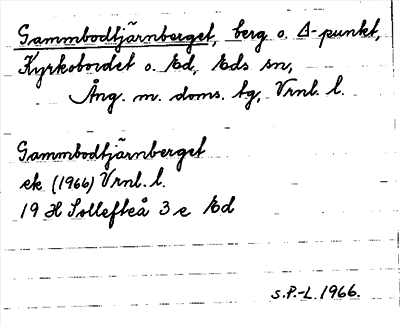 Gammbodtjärnberget, berg o. Δ-punkt,
Kyrkobordet o. Ed, Eds sn,
Ång. m. doms. tg, Vrnl. l.
Gammbodtjärnberget
ek (1966) Vrnl. l.
19 H Sollefteå 3 e Ed
S.P.-L. 1966.